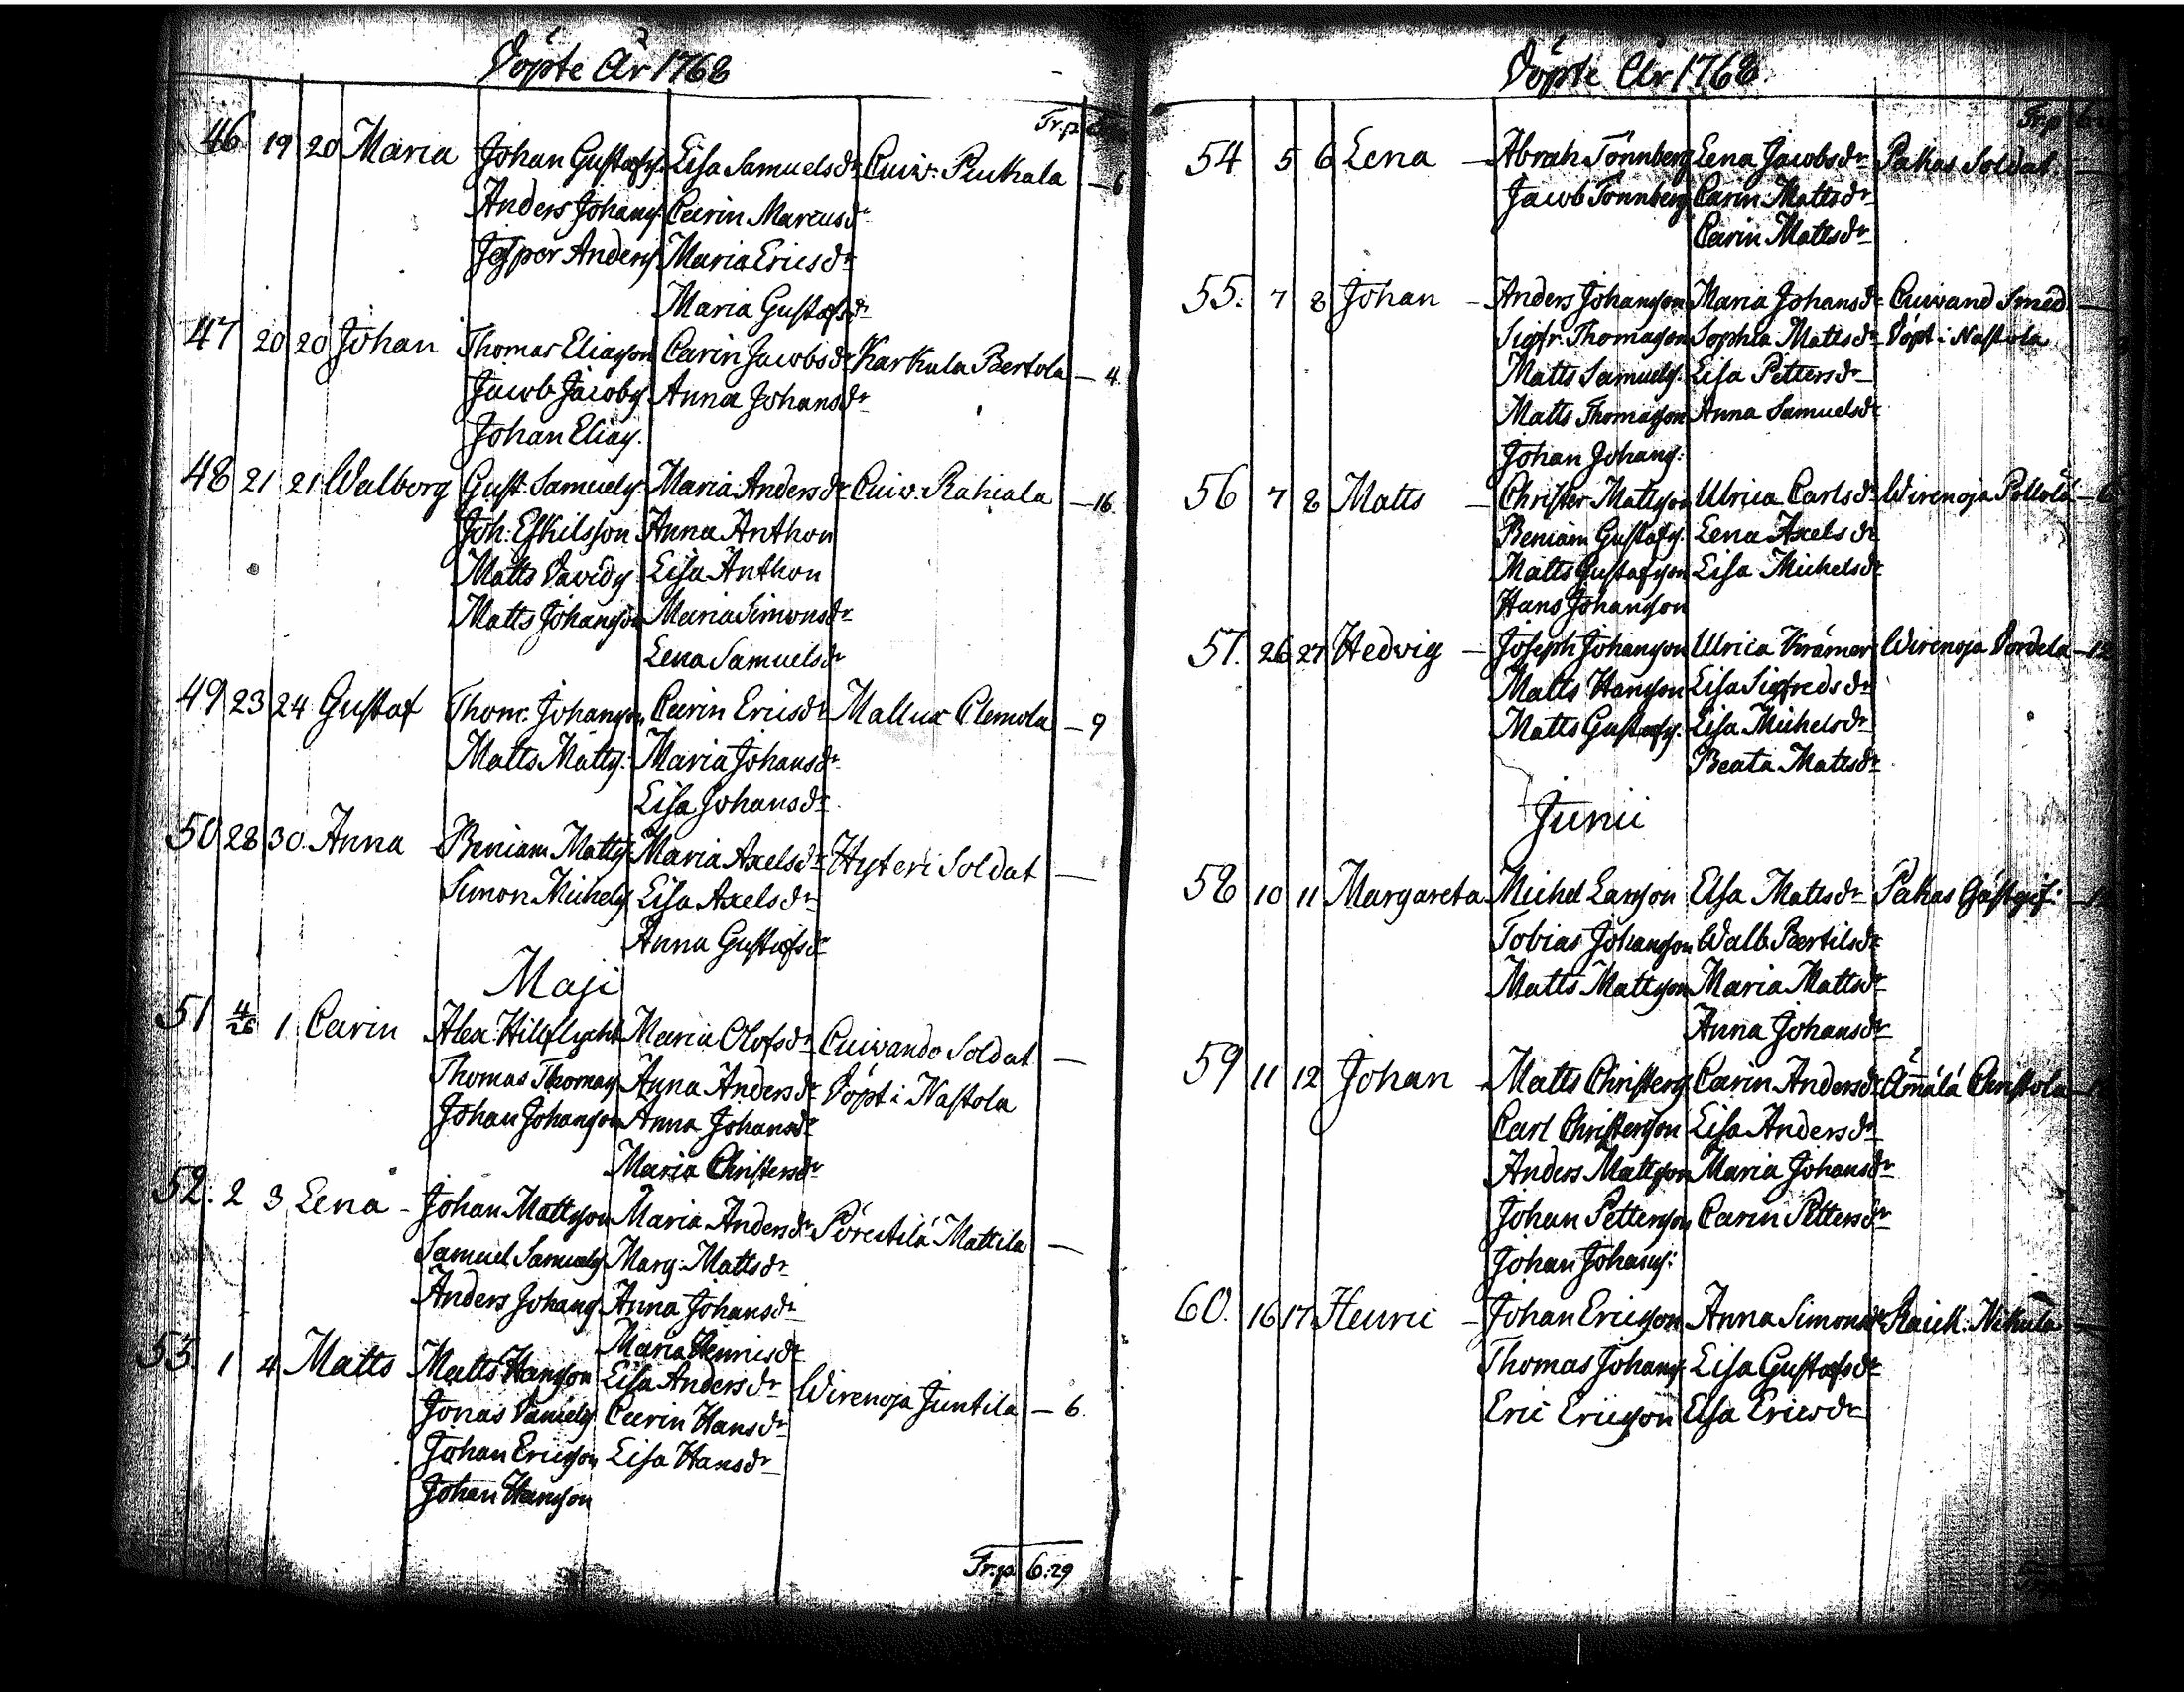 Döpte År 1768
Tr. p.
46 19 20 Maria Johan Gustafss. Lisa Samuelsdr Cuiv. Pukala – 6
Anders Johanss. Carin Marcusdr
Jesper Anderss. Maria Ericsdr
Maria Gustafsdr
47 20 20 Johan Thomas Eliasson Carin Jacobsdr Karkula Bertola – 4.
Jacob Jacobss. Anna Johansdr
Johan Eliass.
48 21 21 Walborg Gust. Samuelss. Maria Andersdr Cuiv. Rahiala – 16.
Joh: Eskilsson Anna Anthon
Matts Davidss. Lisa Anthon
Matts Johansson Maria Simonsdr
Lena Samuelsdr
49 23 24 Gustaf Thom. Johansson Carin Ericsdr Mallux Clemola – 9
Matts Mattss. Maria Johansdr
Lisa Johansdr
50 28 30 Anna – Beniam Mattss. Maria Axelsdr Hyteri Soldat –
Simon Michelss. Lisa Axelsdr
Anna Gustafsdr
Maji
51 4/26 1 Carin Alex. Hillflycht Maria Olofsdr Cuivando Soldat –
Thomas Thomass. Anna Andersdr Döpt i Nastola
Johan Johansson Anna Johansdr
Maria Christersdr
52. 2 3 Lena – Johan Mattsson Maria Andersdr Pörestilä Mattila –
Samuel Samuelss. Marg. Mattsdr
Anders Johanss. Anna Johansdr
Maria Henricsdr
53 1 4 Matts Matts Hansson Lisa Andersdr Wirenoja Juntila – 6.
Jonas Danielss. Carin Hansdr
Johan Ericsson Lisa Hansdr
Johan Hansson
Tr. p. 6:29
Döpte År 1768
Tr. p. 6
54 5 6 Lena – Abrah Tönnberg Lena Jacobsdr Pakas Soldat. –
Jacob Tönnberg Carin Mattsdr
Carin Mattsdr
55. 7 8 Johan – Anders Johansson Maria Johansdr Cuivand Smed –
Sigfr. Thomasson Sophia Mattsdr Döpt i Nastola
Matts Samuelss. Lisa Pettersdr
Matts Thomasson Anna Samuelsdr
Johan Johanss:
56 7 8 Matts – Christer Mattsson Ulrica Carlsdr Wirenoja Pollolä – 6
Beniam Gustafss. Lena Axelsdr
Matts Gustafsson Lisa Michelsdr
Hans Johansson
57. 26 27 Hedvig – Joseph Johansson Ulrica Krämer Wirenoja Vordela – 12
Matts Hansson Lisa Sigfredsdr
Matts Gustafss. Lisa Michelsdr
Beata Mattsdr
Junii
58 10 11 Margareta Michel Larsson Elsa Mattsdr Pakas Gästgif:
Tobias Johansson Walb. Bertilsdr
Matts Mattsson Maria Mattsdr
Anna Johansdr
59 11 12 Johan – Matts Christerss. Carin Andersdr Åmälä Christola
Carl Christersson Lisa Andersdr
Anders Mattsson Maria Johansdr
Johan Pettersson Carin Pettersdr
Johan Johanss:
60. 16 17 Henric – Johan Ericsson Anna Simonsdr Raick. Nikula –
Thomas Johanss. Lisa Gustafsdr
Eric Ericsson Elsa Ericsdr